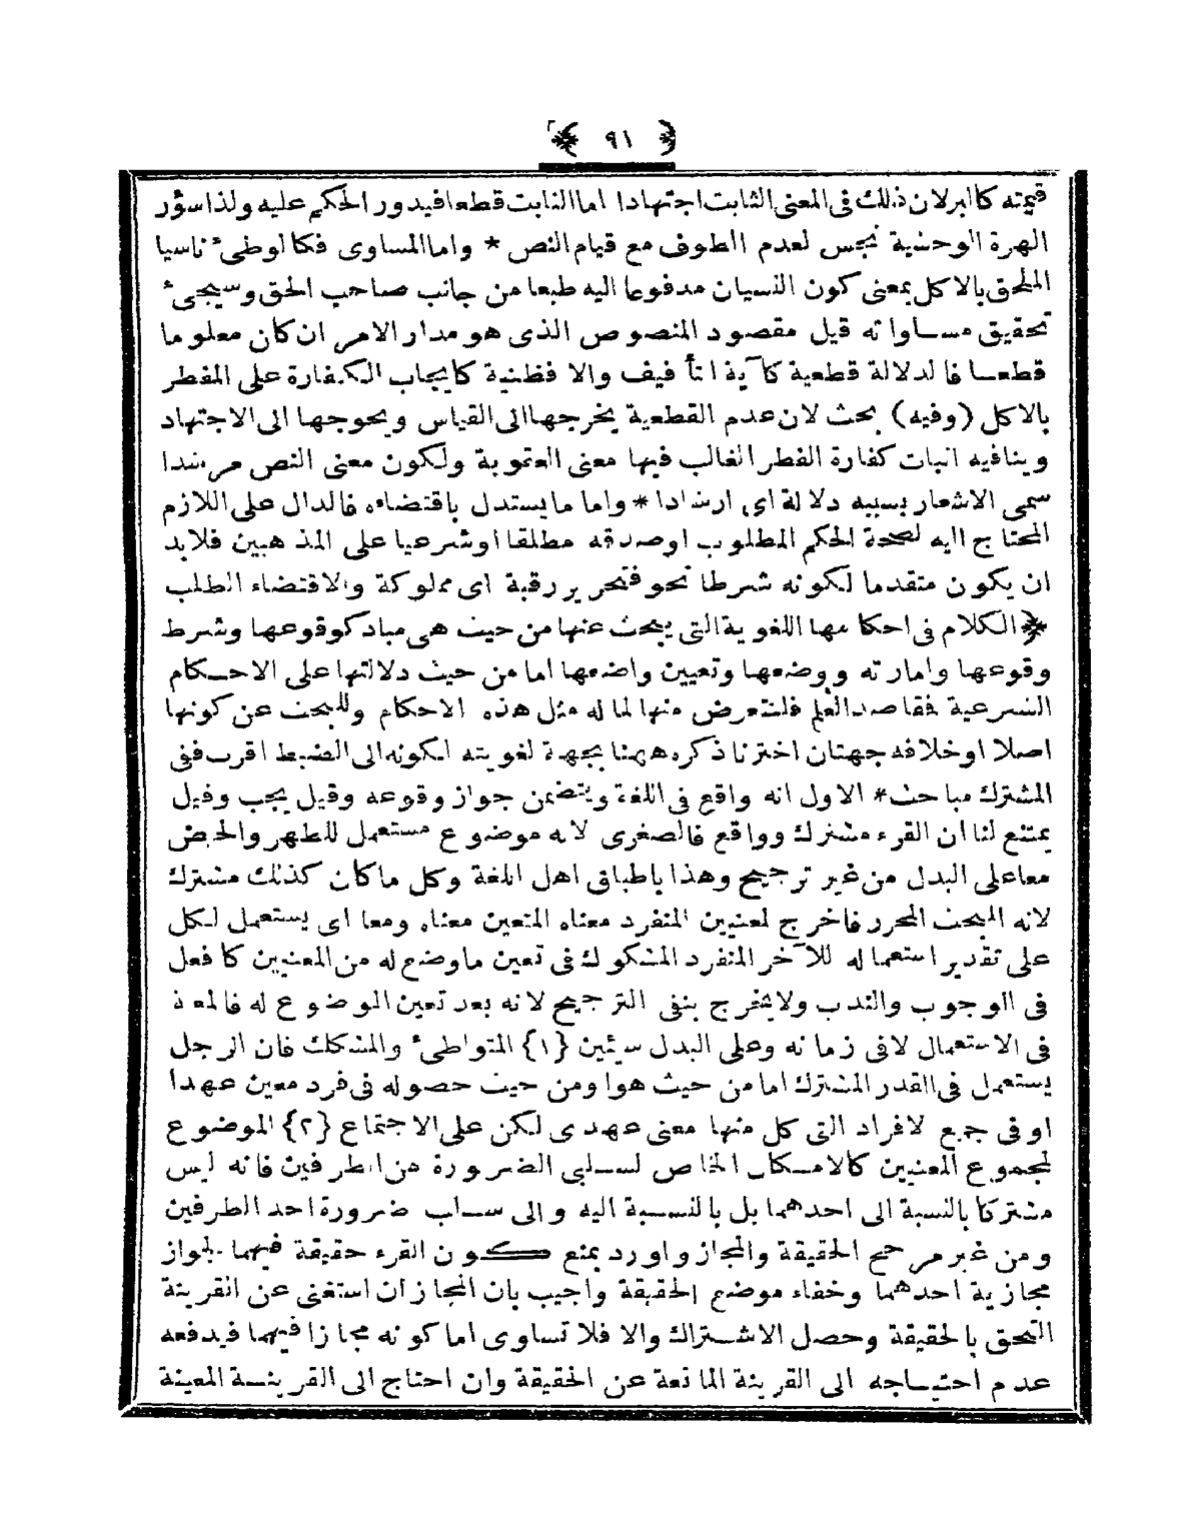 ﴿ ٩١ ﴾
قيمته كما مر لان ذلك فى المعنى الثابت اجتهادا اما الثابت قطعا فيدور الحكم عليه ولذا سؤر
الهرة الوحشية نجس لعدم الطوف مع قيام النص * واما المساوى فكالوطىء ناسيا
الملحق بالاكل بمعنى كون النسيان مدفوعا اليه طبعا من جانب صاحب الحق وسيجىء
تحقيق مساواته قيل مقصود المنصوص الذى هو مدار الامر ان كان معلوما
قطعا فالدلالة قطعية كآية التأفيف والا فظنية كايجاب الكفارة على المفطر
بالاكل (وفيه) بحث لان عدم القطعية يخرجها الى القياس ويحوجها الى الاجتهاد
وينافيه اثبات كفارة الفطر الغالب فيها معنى العقوبة ولكون معنى النص مرشدا
سمى الاشعار بسببه دلالة اى ارشادا * واما ما يستدل باقتضائه فالدال على اللازم
المحتاج اليه لصحة الحكم المطلوب او صدقه مطلقا او شرعيا على المذهبين فلابد
ان يكون متقدما لكونه شرطا نحو فتحرير رقبة اى مملوكة والاقتضاء الطلب
﴿ الكلام فى احكامها اللغوية التى يبحث عنها من حيث هى مباد كوقوعها وشرط
وقوعها وامارته ووضعها وتعيين واضعها اما من حيث دلالتها على الاحكام
الشرعية فمقاصد العلم فلنتعرض منها لما له مثل هذه الاحكام وللبحث عن كونها
اصلا او خلافه جهتان اخترنا ذكره ههنا بجهة لغويته لكونه الى الضبط اقرب ففى
المشترك مباحث * الاول انه واقع فى اللغة ويتضمن جواز وقوعه وقيل يجب وقيل
يمتنع لنا ان القرء مشترك وواقع فالصغرى لانه موضوع مستعمل للطهر والحيض
معا على البدل من غير ترجيح وهذا باطباق اهل اللغة وكل ما كان كذلك مشترك
لانه المبحث المحرر فاخرج لمعنيين المنفرد معناه المتعين معناه ومعا اى يستعمل لكل
على تقدير استعماله للآخر المنفرد المشكوك فى تعين ما وضع له من المعنيين كافعل
فى الوجوب والندب ولا يخرج بنفى الترجيح لانه بعد تعين الموضوع له فالمعية
فى الاستعمال لا فى زمانه وعلى البدل سيئين {١} المتواطىء والمشكك فان الرجل
يستعمل فى القدر المشترك اما من حيث هو او من حيث حصوله فى فرد معين عهدا
او فى جميع الافراد التى كل منها معنى عهدى لكن على الاجتماع {٢} الموضوع
لمجموع المعنيين كالامكان الخاص لسلبى الضرورة من الطرفين فانه ليس
مشتركا بالنسبة الى احدهما بل بالنسبة اليه والى سلب ضرورة احد الطرفين
ومن غير مرجح الحقيقة والمجاز واورد بمنع كون القرء حقيقة فيهما لجواز
مجازية احدهما وخفاء موضع الحقيقة واجيب بان المجاز ان استغنى عن القرينة
التحق بالحقيقة وحصل الاشتراك والا فلا تساوى اما كونه مجازا فيهما فيدفعه
عدم احتياجه الى القرينة المانعة عن الحقيقة وان احتاج الى القرينة المعينة